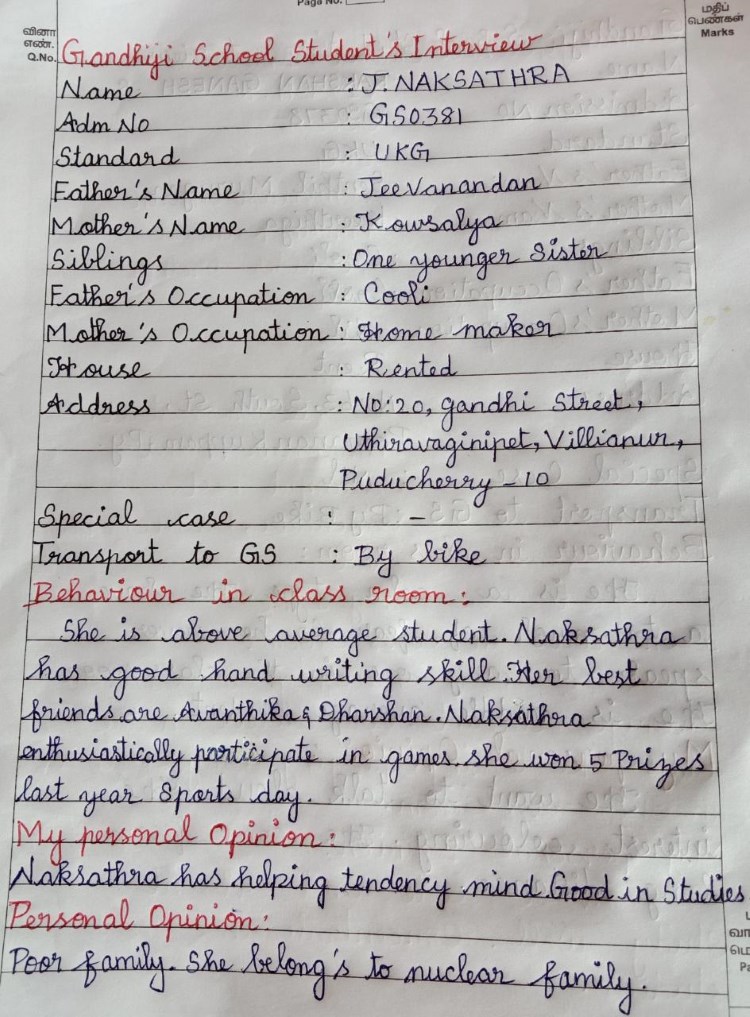 Page No.
வினா
எண்.
Q.No.
மதிப்
பெண்கள்
Marks
Gandhiji School Student's Interview
Name : J. NAKSATHRA
Adm No : GS0381
Standard : UKG
Father's Name : Jeevanandan
Mother's Name : Kowsalya
Siblings : One younger Sister
Father's Occupation : Cooli
Mother's Occupation : Home maker
House : Rented
Address : NO: 20, gandhi Street,
Uthiravaginipet, Villianur,
Puducherry - 10
Special case : -
Transport to GS : By bike
Behaviour in class room :
She is above average student. Naksathra
has good hand writing skill. Her best
friends are Avanthika & Dharshan. Naksathra
enthusiastically participate in games. she won 5 Prizes
last year Sports day.
My personal Opinion :
Naksathra has helping tendency mind Good in Studies
Personal Opinion :
Poor family. She belong's to nuclear family.